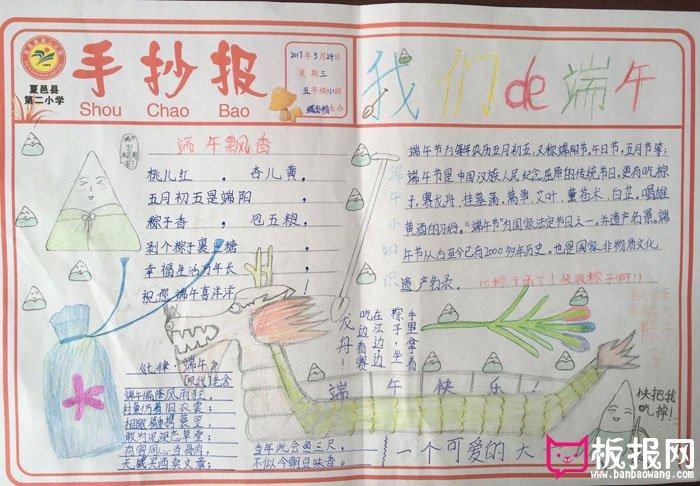 夏邑县
第二小学
手抄报
Shou Chao Bao
2017年5月24日
星期三
五年级
主办
我们de端午
端午飘香
桃儿红, 杏儿黄,
五月初五是端阳
粽子香, 包五粮,
剥个粽子裹上糖
幸福生活万年长
祝您端午喜洋洋!
端午小知识
端午节为每年农历五月初五,又称端阳节,午日节,五月节等;
端午节是中国汉族人民纪念屈原的传统节日,更有吃粽
子,赛龙舟,挂菖蒲,蒿草,艾叶,薰苍术,白芷,喝雄
黄酒的习俗。“端午节”为国家法定节日之一,并遗产名录。端
午节从古至今已有2000多年历史。也是国家非物质文化
遗产名录。
(下粽子雨了!快收粽子啊!!)
手里拿着
粽子,坐
在江边,
吃边看赛
龙舟!
端午快乐!
快把我
吃掉!
《七律·端午》
老舍
端午偏逢风雨狂,
村童仍着旧衣裳;
相邀情重携蓑笠,
敢为泥深恋草堂;
有客同心当骨肉,
无钱买酒卖文章;
当年此会鱼三尺,
不似今朝豆味香。
一个可爱的大
板报网
www.banbaowang.com